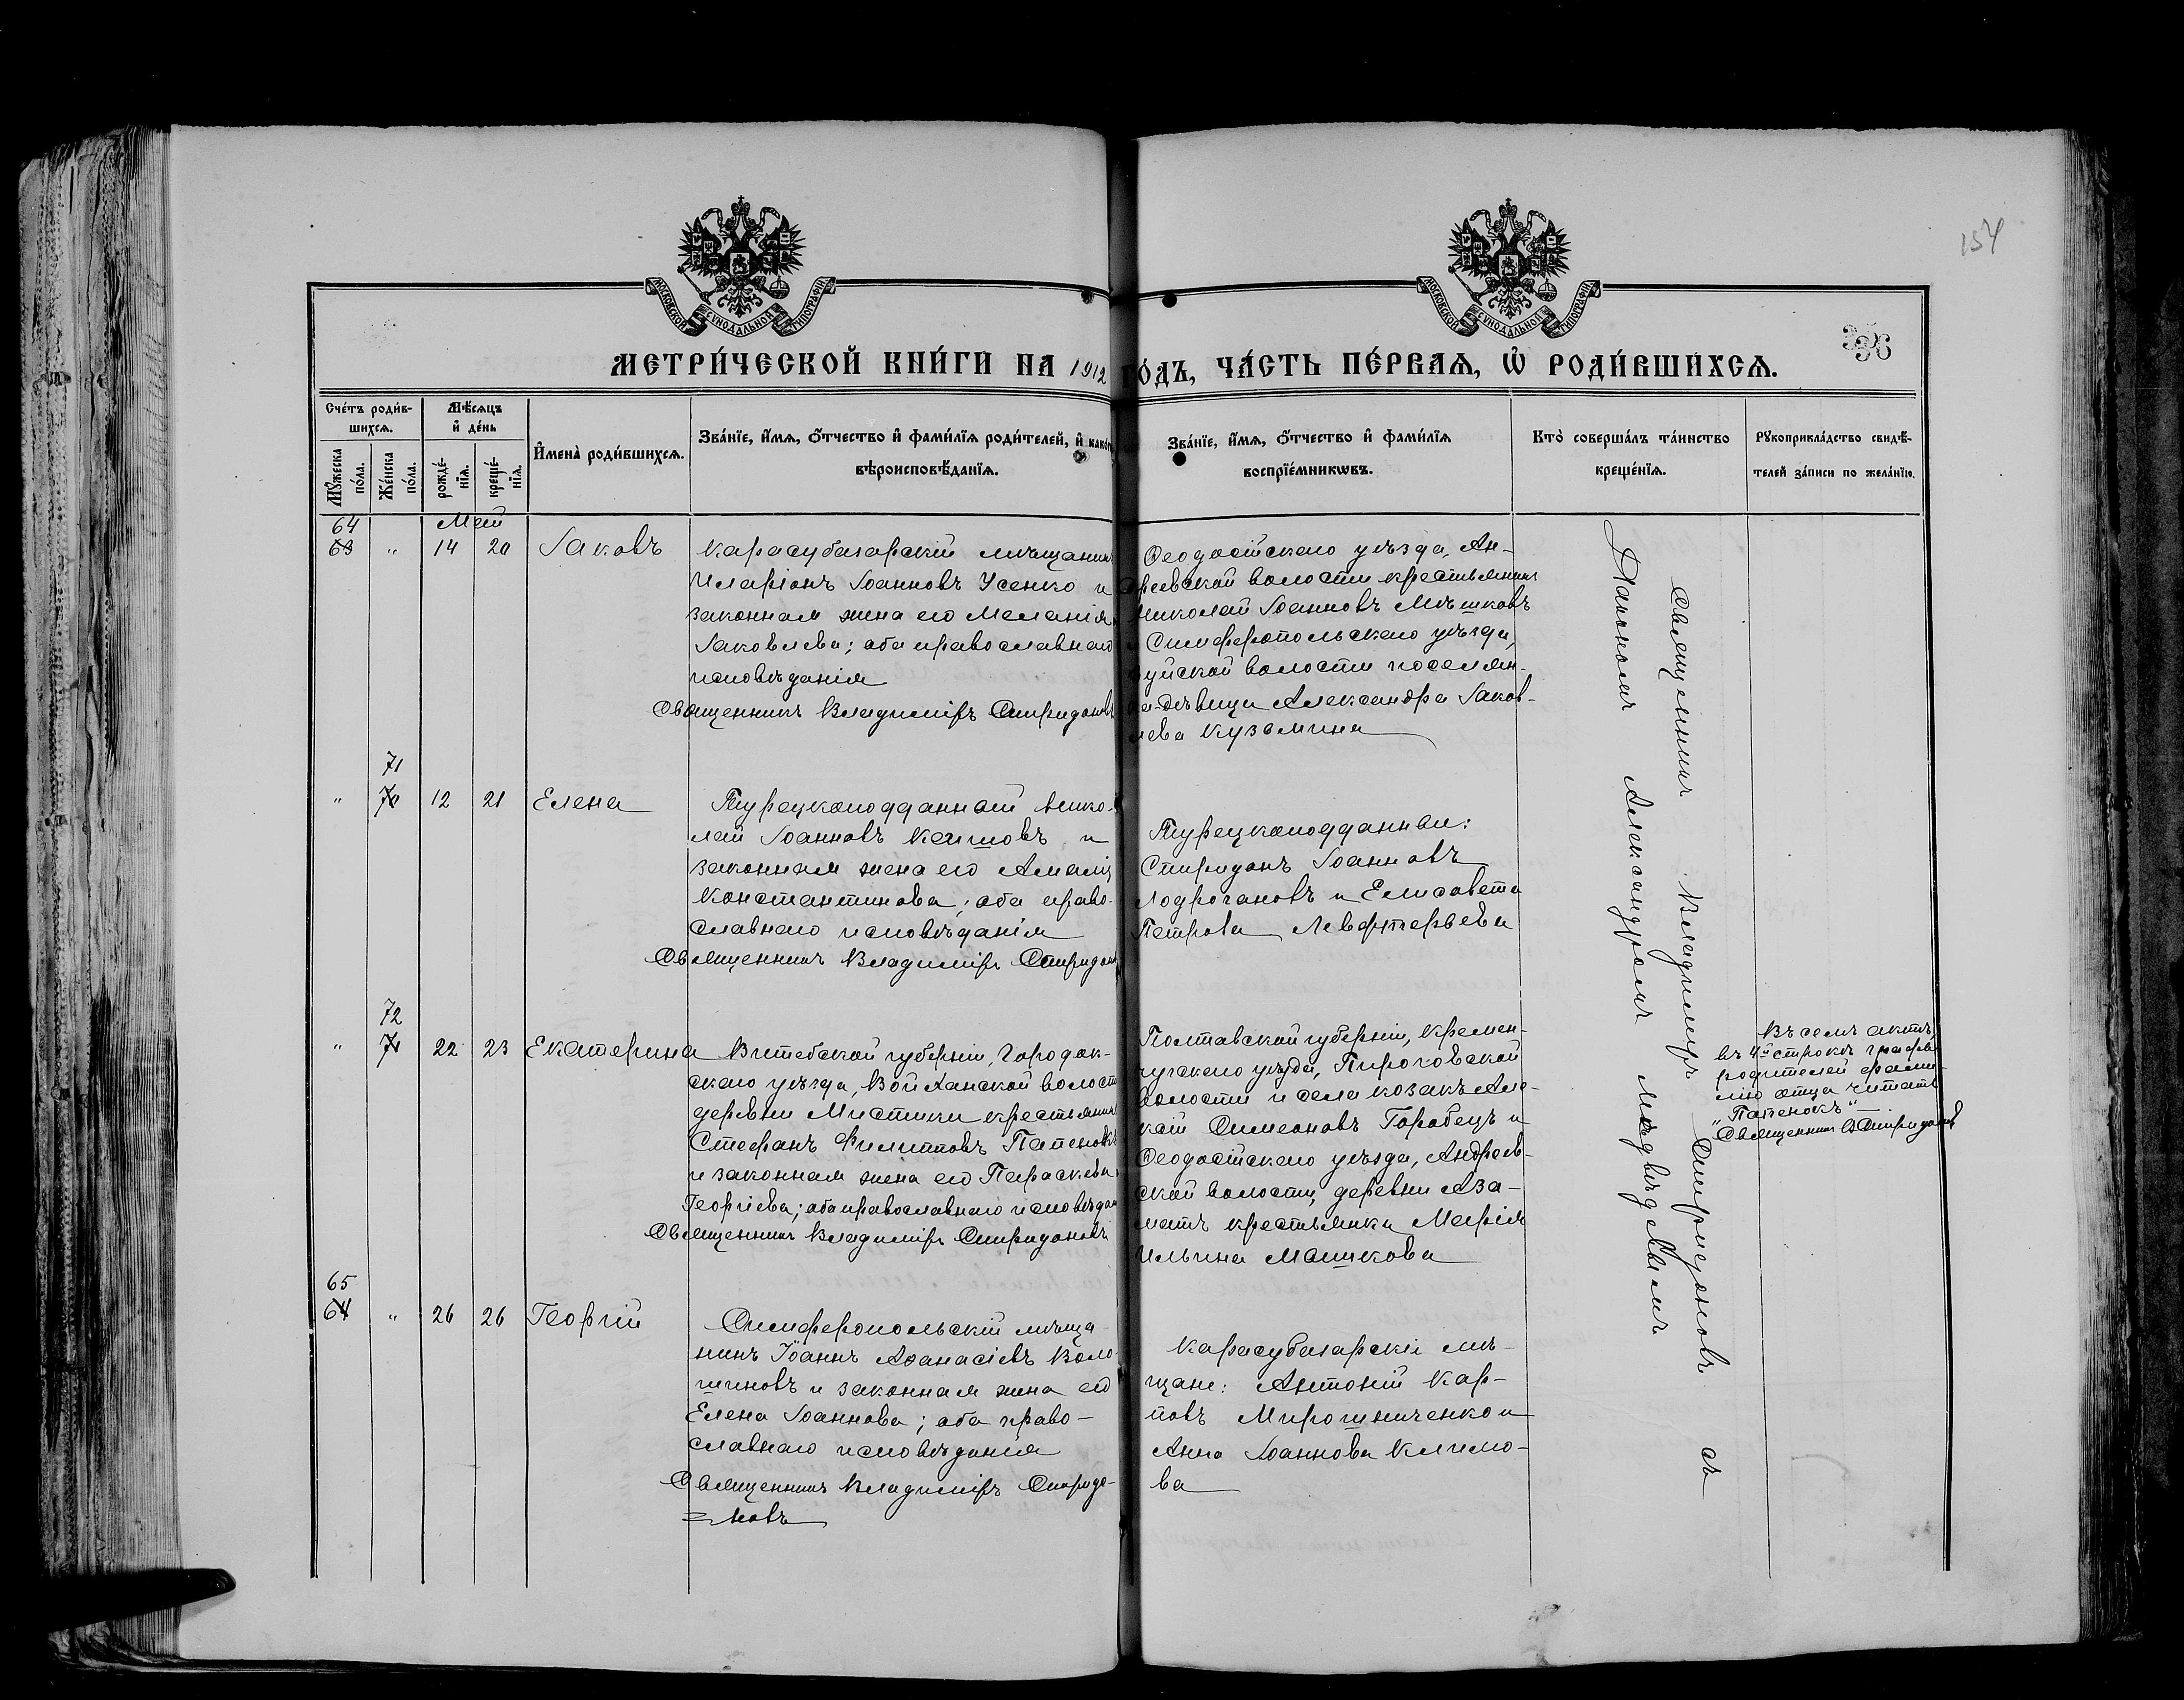 154
336
МОСКОВСКОЙ СѴНОДАЛЬНОЙ ТИПОГРАФІИ
МОСКОВСКОЙ СѴНОДАЛЬНОЙ ТИПОГРАФІИ
МЕТРИ́ЧЕСКОЙ КНИ́ГИ НА 1912 ГО́ДЪ, ЧА́СТЬ ПЕ́РВАѦ, Ѡ҆ РОДИ́ВШИХСѦ.
Сче́тъ роди́в-
шихсѧ.
Мꙋ́жеска по́ла.
Же́нска по́ла.
Мѣ́сѧцъ
и҆ де́нь
рожде́-
нїѧ.
креще́-
нїѧ.
И҆мена̀ роди́вшихсѧ.
Зва́нїе, и҆́мѧ, ѻ҆́тчество и҆ фами́лїѧ роди́телей, и҆ како́гѡ
вѣроисповѣ́данїѧ.
Зва́нїе, и҆́мѧ, ѻ҆́тчество и҆ фами́лїѧ
воспрїе́мникѡвъ.
Кто̀ соверша́лъ та́инство
креще́нїѧ.
Рꙋкоприкла́дство свидѣ́-
телей за́писи по жела́нїю.
64
63 " Май 14 20 Іаковъ
Карасубазарскій мѣщанинъ
Иларіонъ Іоанновъ Усенко и
законная жена его Меланія
Іаковлева; оба православнаго
исповѣданія
Священникъ Владиміръ Спиридоновъ
Ѳеодосійскаго уѣзда, Ан-
дреевской волости крестьянинъ
Николай Іоанновъ Мѣшковъ
и Симферопольскаго уѣзда,
Зуйской волости поселян-
ка-дѣвица Александра Іаков-
лева Кузьмина
71
" 70 12 21 Елена
Турецкоподданный Нико-
лай Іоанновъ Кашовъ и
законная жена его Амалія
Константинова; оба право-
славнаго исповѣданія
Священникъ Владиміръ Спиридон
Турецкоподданные:
Спиридонъ Іоанновъ
Лодрогановъ и Елисавета
Петрова Левфтерьева
72
" 71 22 23 Екатерина
Витебской губерніи, Городок-
скаго уѣзда, Войханской волости
деревни Мистики крестьянинъ
Стефанъ Филипповъ Папенокъ
и законная жена его Параскева
Георгіева; оба православнаго исповѣдан
Священникъ Владиміръ Спиридоновъ
Полтавской губерніи, Кремен-
чугскаго уѣзда, Пироговской
волости и села козакъ Але-
ксій Симеоновъ Горобецъ и
Ѳеодосійскаго уѣзда, Андреев-
ской волости, деревни Аза-
матъ крестьянка Марія
Ильина Машкова
Въ семъ актѣ
въ 4й строкѣ графы
родителей фами-
лію отца читать
"Папенокъ"
Священникъ В Спиридоновъ
65
64 " 26 26 Георгій
Симферопольскій мѣща-
нинъ Іоаннъ Аѳанасіевъ Воло-
шиновъ и законная жена его
Елена Іоаннова; оба право-
славнаго исповѣданія
Священникъ Владиміръ Спиридо-
новъ
Карасубазарскіе мѣ-
щане: Антоній Кар-
повъ Мирошниченко и
Анна Іоаннова Климо-
ва
Священникъ Владиміръ Спиридоновъ съ
Діакономъ Александромъ Медвѣдевымъ